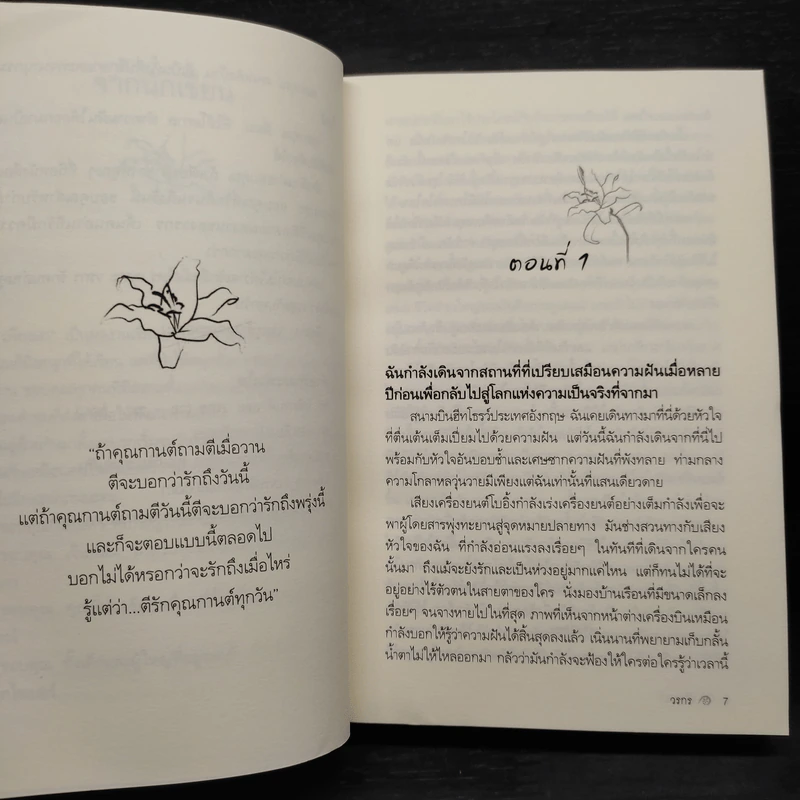 “ถ้าคุณกานต์ถามตีเมื่อวาน
ตีจะบอกว่ารักถึงวันนี้
แต่ถ้าคุณกานต์ถามตีวันนี้ตีจะบอกว่ารักถึงพรุ่งนี้
และก็จะตอบแบบนี้ตลอดไป
บอกไม่ได้หรอกว่าจะรักถึงเมื่อไหร่
รู้แต่ว่า...ตีรักคุณกานต์ทุกวัน”
ตอนที่ 1
ฉันกำลังเดินจากสถานที่ที่เปรียบเสมือนความฝันเมื่อหลาย
ปีก่อนเพื่อกลับไปสู่โลกแห่งความเป็นจริงที่จากมา
สนามบินฮีทโธรว์ประเทศอังกฤษ ฉันเคยเดินทางมาที่นี่ด้วยหัวใจ
ที่ตื่นเต้นเต็มเปี่ยมไปด้วยความฝัน แต่วันนี้ฉันกำลังเดินจากที่นี่ไป
พร้อมกับหัวใจอันบอบช้ำและเศษซากความฝันที่พังทลาย ท่ามกลาง
ความโกลาหลวุ่นวายมีเพียงแต่ฉันเท่านั้นที่แสนเดียวดาย
เสียงเครื่องยนต์โบอิ้งกำลังเร่งเครื่องยนต์อย่างเต็มกำลังเพื่อจะ
พาผู้โดยสารพุ่งทะยานสู่จุดหมายปลายทาง มันช่างสวนทางกับเสียง
หัวใจของฉัน ที่กำลังอ่อนแรงลงเรื่อยๆ ในทันทีที่เดินจากใครคน
นั้นมา ถึงแม้จะยังรักและเป็นห่วงอยู่มากแค่ไหน แต่ก็ทนไม่ได้ที่จะ
อยู่อย่างไร้ตัวตนในสายตาของใคร นั่งมองบ้านเรือนที่มีขนาดเล็กลง
เรื่อยๆ จนจางหายไปในที่สุด ภาพที่เห็นจากหน้าต่างเครื่องบินเหมือน
กำลังบอกให้รู้ว่าความฝันได้สิ้นสุดลงแล้ว เนิ่นนานที่พยายามเก็บกลั้น
น้ำตาไม่ให้ไหลออกมา กลัวว่ามันกำลังจะฟ้องให้ใครต่อใครรู้ว่าเวลานี้
วรกร 7